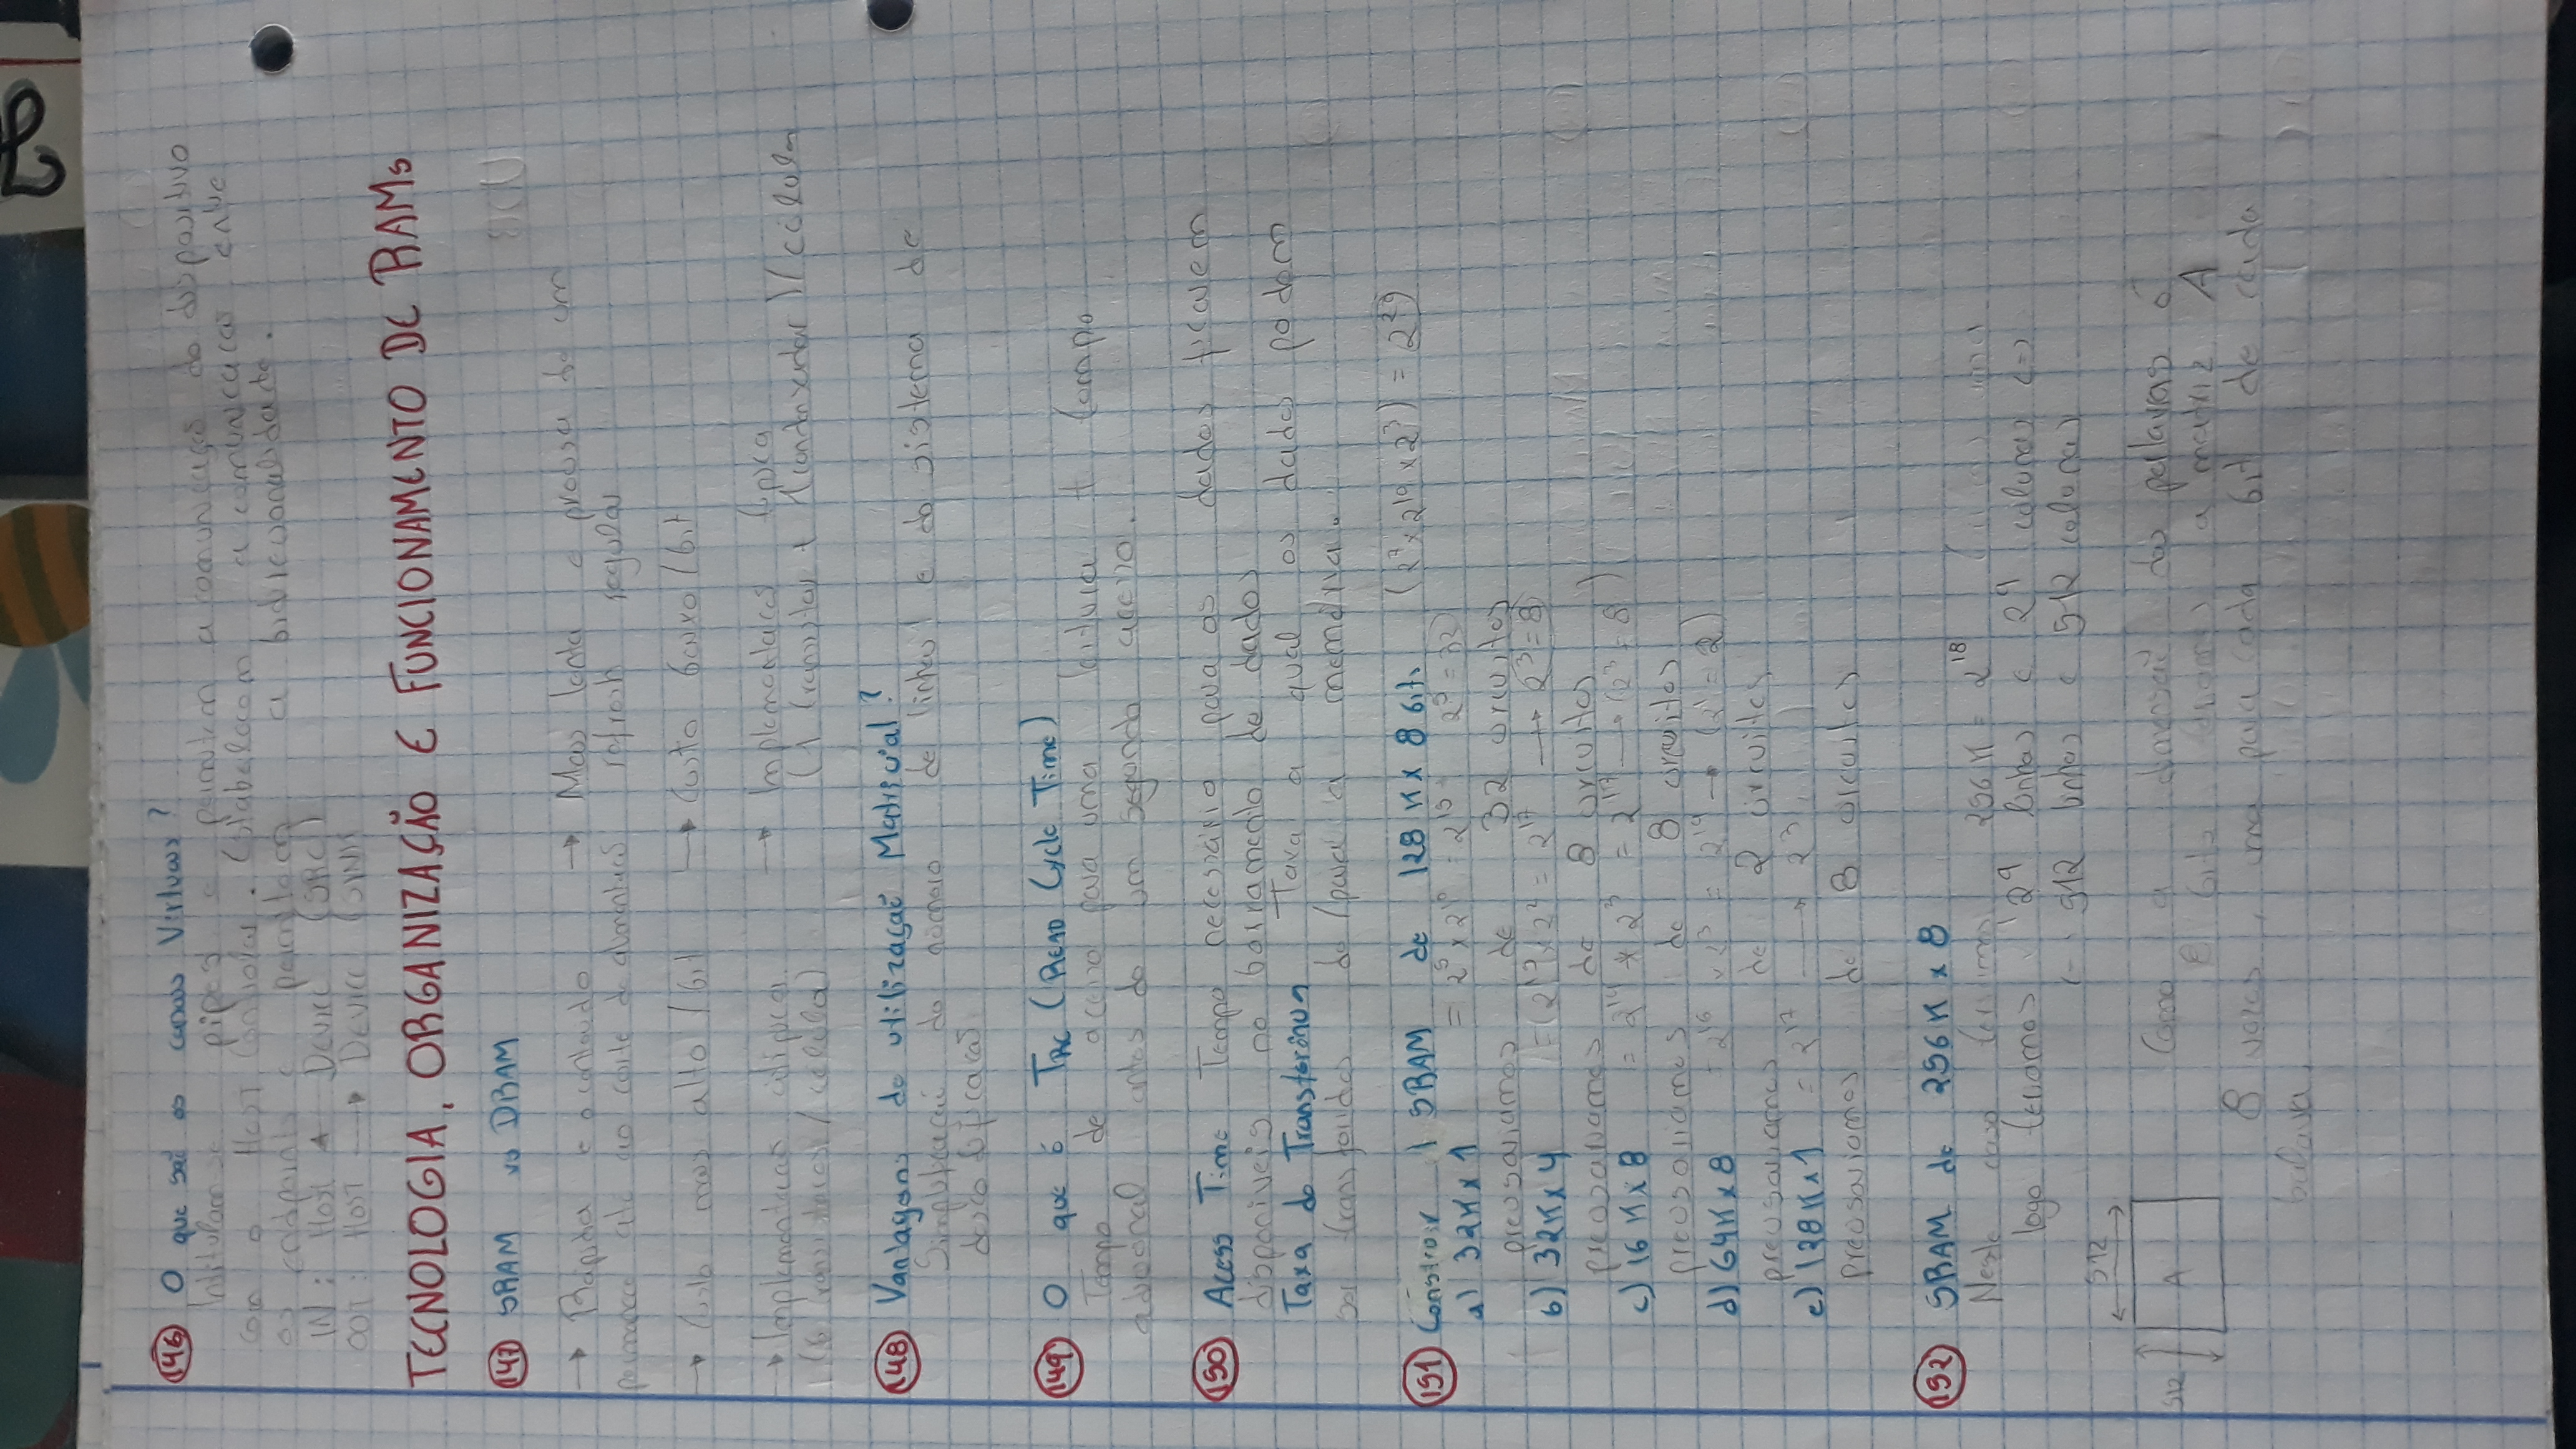 146 O que são os canais Virtuais?
Intitulam-se pipes e permitem a comunicação do dispositivo
com o Host Controller. Estabelecem a comunicação entre
os endpoints e permitem a bidirecionalidade.
IN: Host ← Device (SRC)
OUT: HOST → DEVICE (SINK)
TECNOLOGIA, ORGANIZAÇÃO E FUNCIONAMENTO DE RAMs
147 SRAM vs DRAM
→ Rápida e o conteudo → Mais lenta e precisa de um
permanece até ao corte de alimentação refresh regular
→ Custo mais alto / bit → Custo baixo / bit
→ Implementação → Implementação típica
(6 transistores / célula) (1 transistor + 1 condensador) / célula
148 Vantagens de utilização Matricial?
Simplificação do número de linhas e do sistema de
descodificação
149 O que é TRC (READ Cycle Time)
Tempo de acesso para uma leitura + tempo
adicional antes de um segundo acesso.
150 Acess Time Tempo necessário para os dados ficarem
disponiveis no barramento de dados
Taxa de Transferência Taxa à qual os dados podem
ser transferidos de / para a memória.
151 Construir 1 SRAM de 128K x 8 bits
a) 32K x 1 = 2⁵ x 2¹⁰ = 2¹⁵ 2⁵ = 32
precisariamos de 32 circuitos
b) 32K x 4 = 2¹⁷ → 2³ = 8
precisariamos de 8 circuitos
c) 16K x 8 = 2¹⁴ * 2³ = 2¹⁷ → (2³ = 8)
precisariamos de 8 circuitos
d) 64K x 8 = 2¹⁶ x 2³ = 2¹⁹ → (2¹ = 2)
precisariamos de 2 circuitos
e) 128K x 1 = 2¹⁷ → 2³
precisariamos de 8 circuitos
152 SRAM de 256K x 8
Neste caso 256K = 2¹⁸
logo teriamos 2⁹ linhas e 2⁹ colunas (=)
512 linhas e 512 colunas
512
512 A
Como a dimensão das pallavras é
8 bits a matriz A
8 vezes, uma para cada bit de cada
palavra.